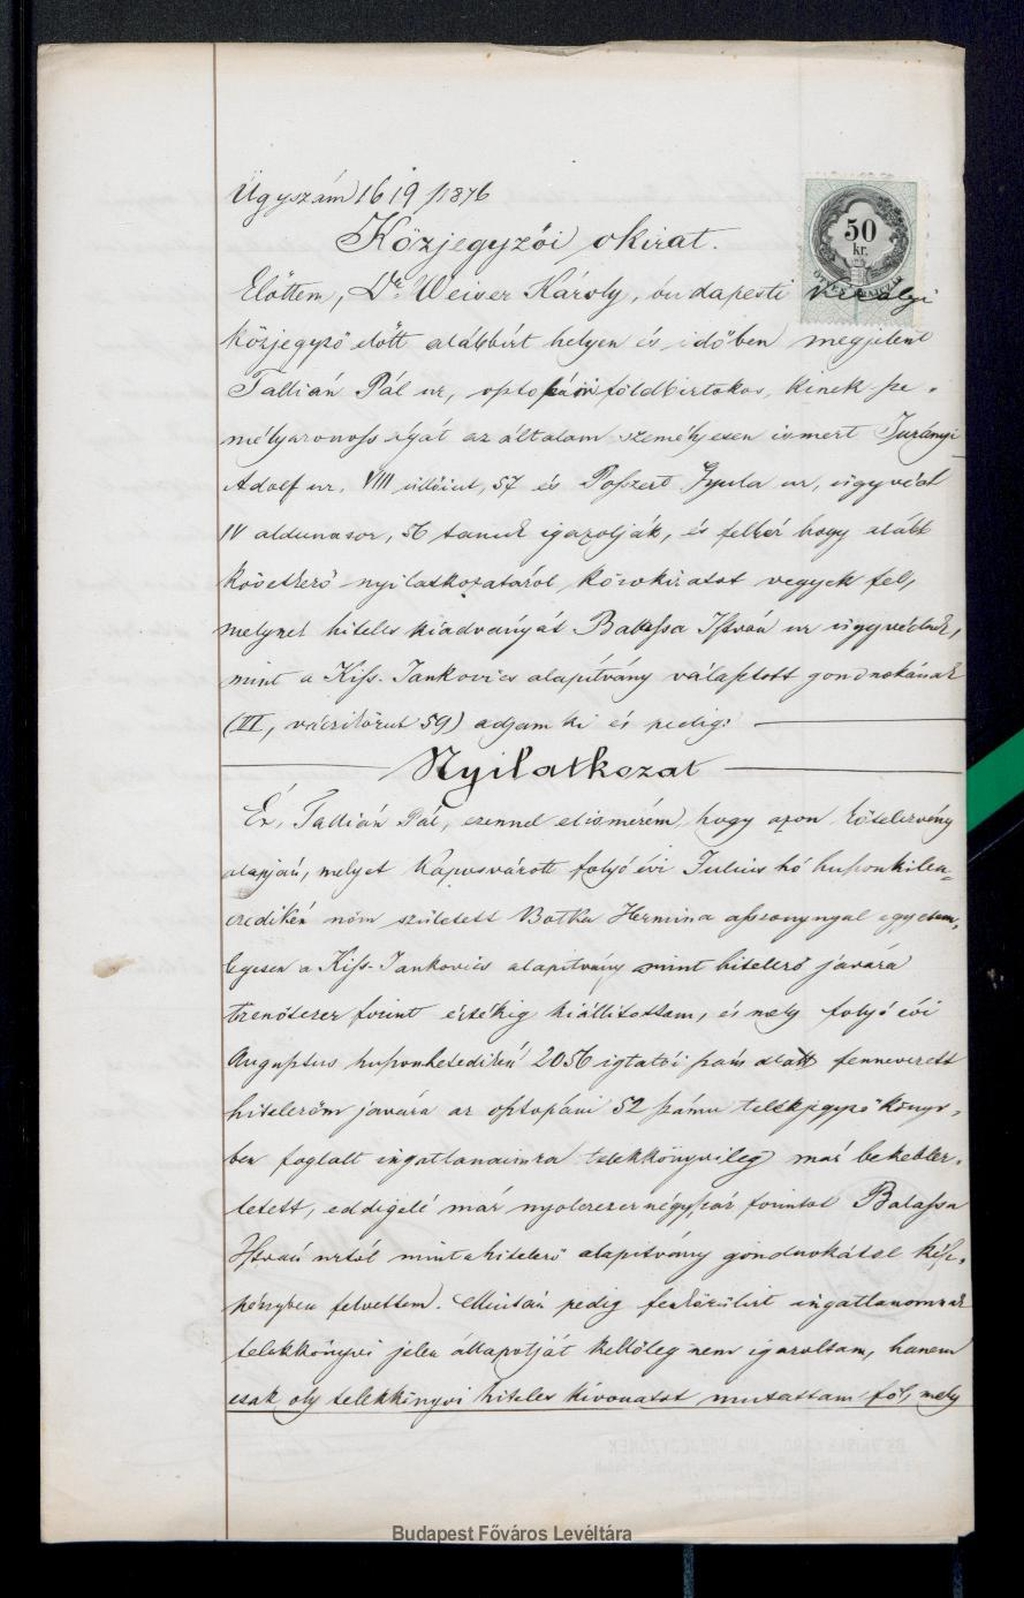 Ügyszám 1619/1876
50
kr.
Közjegyzői okirat.
Előttem, Dr. Weiser Károly, budapesti királyi
közjegyző előtt alább írt helyen és időben megjelent
Tallián Pál ur, földbirtokos, kinek sze-
mélyazonosságát az általam személyesen ismert Jurányi
Adolf ur, VIII üllőiut, 57 és Poszert Gyula ur, ügyvéd
IV aldunasor, 56 tanuk igazolják, és felkér hogy alább
következő nyilatkozatáról közokiratot vegyek fel,
melynek hiteles kiadványát Balassa István ur ügyvédnek,
mint a Kiss-Jankovics alapítvány választott gondnokának
(VI, váczikörut 59) adjam ki és pedig:
Nyilatkozat
Én, Tallián Pál, ezennel elismerem, hogy azon kötelezvény
alapján, melyet Kaposvárott folyó évi Julius hó huszonkilen-
czedikén nőm született Botka Hermina asszonynyal egyetem-
legesen a Kiss-Jankovics alapítvány mint hitelező javára
tizenötezer forint értékig kiállítottam, és mely folyó évi
Augusztus huszonhetedikén 2056 igtatói szám alatt fennevezett
hitelezőm javára az osztopáni 52 számu telekjegyzőkönyv-
ben foglalt ingatlanaimra telekkönyvileg már bekebelez-
tetett, eddigelé már nyolczezernégyszáz forintot Balassa
István urtól mint a hitelező alapítvány gondnokától kész-
pénzben felvettem. Miután pedig fenkörülirt ingatlanomnak
telekkönyvi jelen állapotját kellőleg nem igazoltam, hanem
csak oly telekkönyvi hiteles kivonatot mutattam föl, mely
Budapest Főváros Levéltára